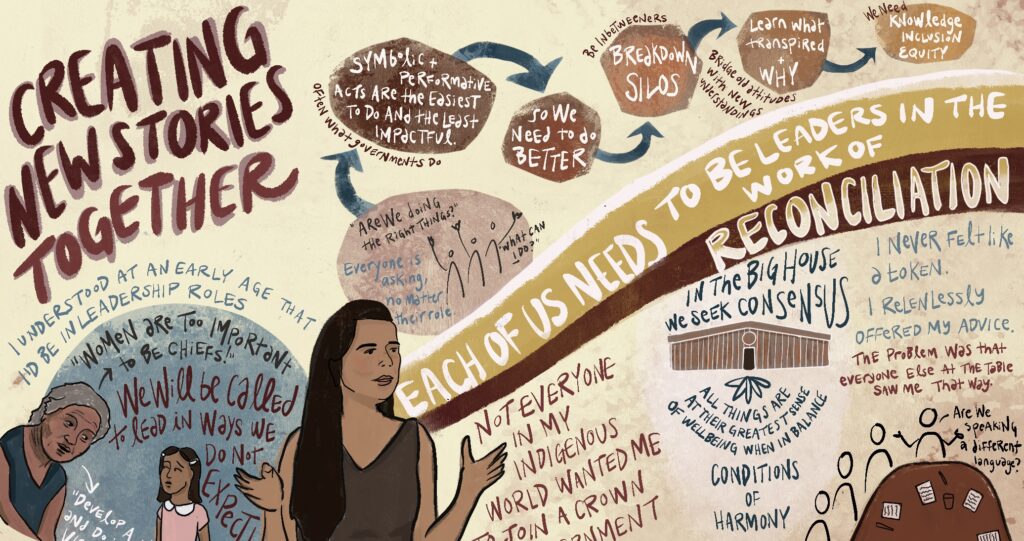 CREATING
NEW STORIES
TOGETHER
I UNDERSTOOD AT AN EARLY AGE THAT
I'D BE IN LEADERSHIP ROLES
"WOMEN ARE TOO IMPORTANT
TO BE CHIEFS!"
We Will be Called
to lead in Ways We
Do Not
EXPECT
"Develop A
and Do
OFTEN What governments Do
SYMBOLIC +
PERFORMATIVE
ACTS ARE the EASIEST
to Do AND the LEAST
IMPACTFUL.
So We
Need to do
BETTER
Be InbetweenerS
BREAKDOWN
SILOS
Bridge old attitudes
With New
understandings
Learn What
transpired
+
WHY
We Need
KNOWLEDGE
INCLUSION
EQUITY
"ARE We DOING
the RIGHT THINGS?"
"WHAT CAN
I DO?"
Everyone is
asking,
no matter
their role.
EACH OF US NEEDS TO BE LEADERS IN THE
WORK OF
RECONCILIATION
NOT EVERYONE
IN MY
INDIGENOUS
WORLD WANTED ME
TO JOIN A CROWN
IN the BIG HOUSE
We SEEK CONSENSUS
ALL THINGS ARE
AT THEIR GREATEST SENSE
OF WELLBEING WHEN IN BALANCE
CONDITIONS
OF
HARMONY
I NEVER FELT LIKE
a tOKEN.
I RELENLESSLY
OFFERED MY ADVICE.
THE PROBLEM WAS THAT
EVERYONE ELSE AT THE TABLE
SAW ME THAT WAY.
Are We
speaking
a different
language?